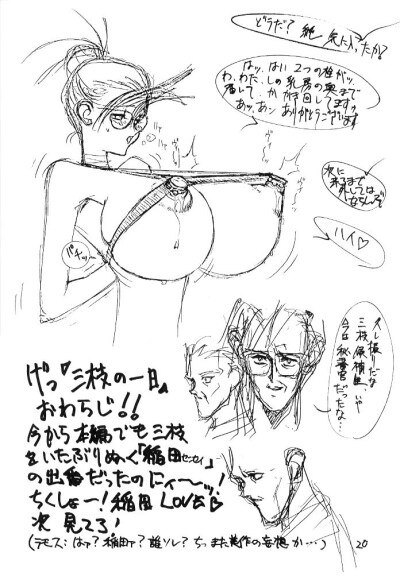 どうだ？純 気に入ったか？
はッ、はい 2つの栓がッ
わ、わたしの乳房の奥まで
届して、かかき回してますッ
あッ、あッ ありがとうございます
次に
来るまで
外しては
ならんぞ
ハイ♡
パチッ
久し振りだな
三枝候補生、いや
今は秘書官だったな…
げっ「三枝の一日」
おわちじ!!
今から本編でも三枝
をいたぶりぬく「稲田センセイ」
の出番だったのにィ〜ッ!
ちくしょー!稲田LOVE♡
次見てろ!
(デモス:はァ？稲田ァ？誰ソレ？ちっまた美作の妄想か…)
20